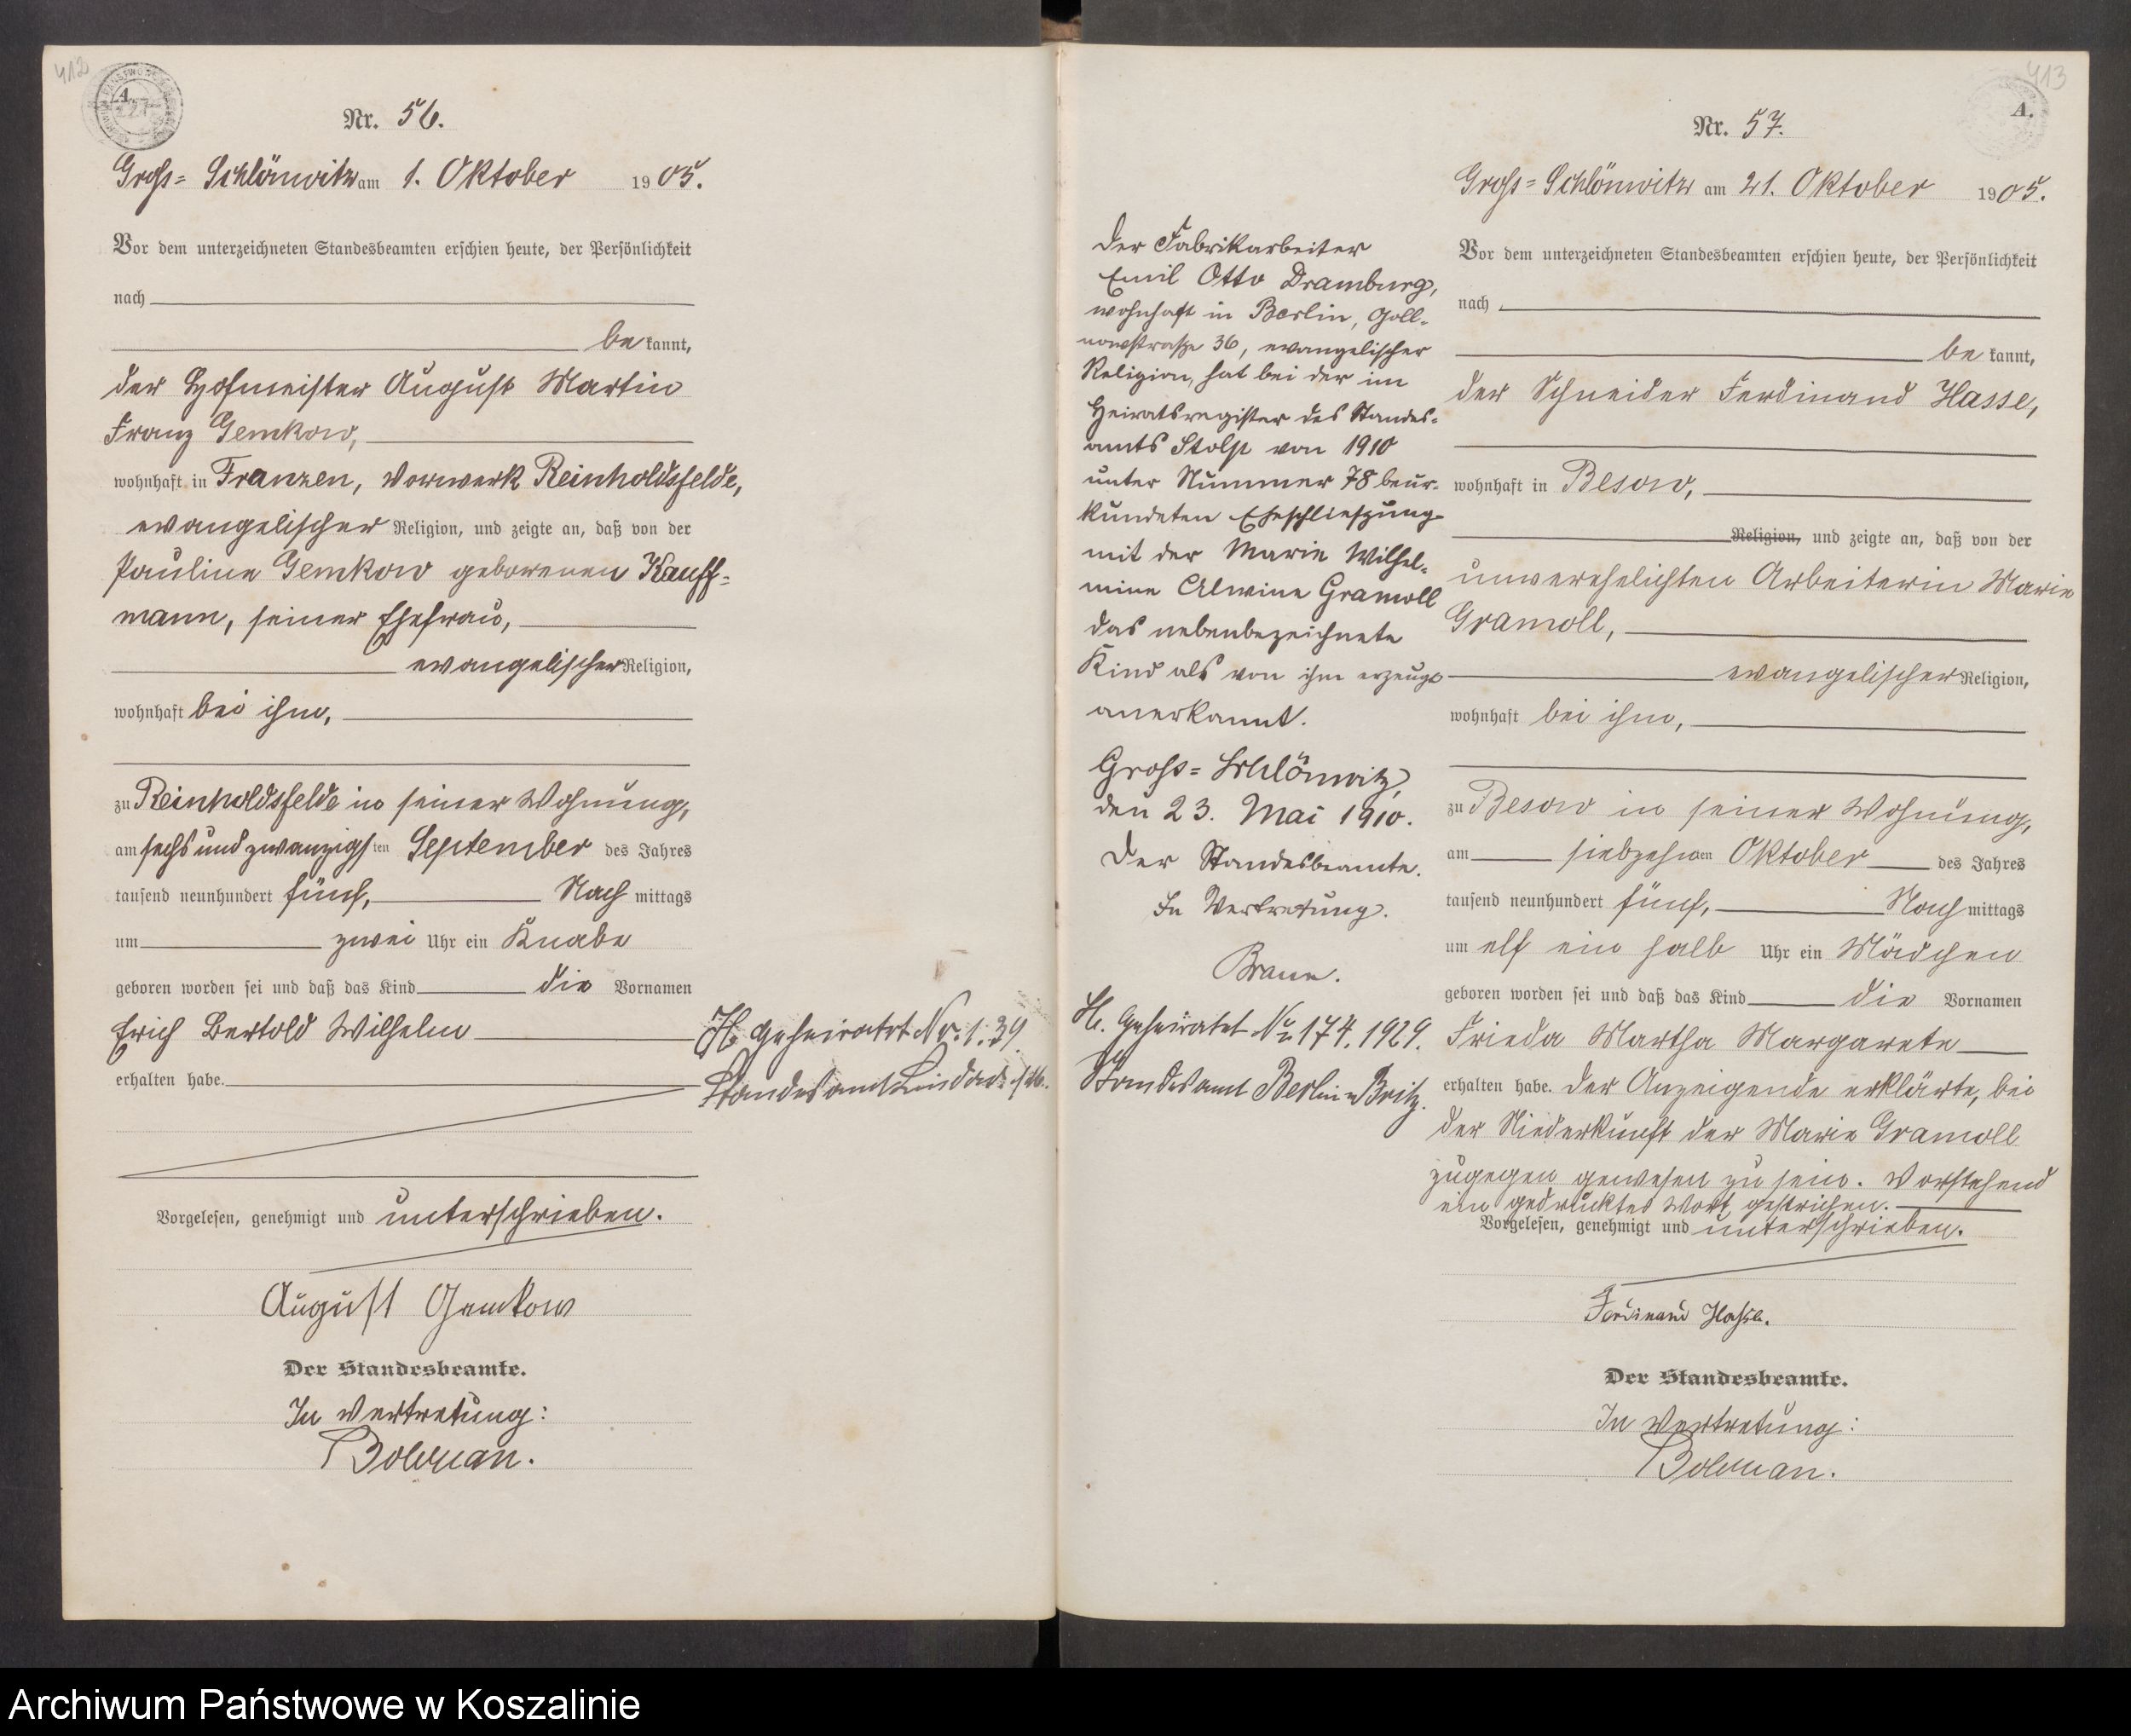 412
A.
Nr. 56.
Gross= Schlönwitz am 1. Oktober 1905.
Vor dem unterzeichneten Standesbeamten erschien heute, der Persönlichkeit
nach
bekannt,
der Hofmeister August Martin
Franz Gemkow,
wohnhaft in Franzen, Vorwerk Reinholdsfelde,
evangelischer Religion, und zeigte an, daß von der
Pauline Gemkow geborenen Kauff=
mann, seiner Ehefrau,
evangelischer Religion,
wohnhaft bei ihm,
zu Reinholdsfelde in seiner Wohnung,
am sechs und zwanzigsten September des Jahres
tausend neunhundert fünf, Nachmittags
um zwei Uhr ein Knabe
geboren worden sei und daß das Kind die Vornamen
Erich Bertold Wilhelm
erhalten habe.
Vorgelesen, genehmigt und unterschrieben.
August Gemkow
Der Standesbeamte.
In Vertretung:
geheiratet Nr. 1. 39
Standesamt
413
A.
Nr. 57.
Gross= Schlönwitz am 21. Oktober 1905.
Vor dem unterzeichneten Standesbeamten erschien heute, der Persönlichkeit
nach
bekannt,
der Schneider Ferdinand Hasse,
wohnhaft in Besow,
Religion, und zeigte an, daß von der
unverehelichten Arbeiterin Marie
Gramoll,
evangelischer Religion,
wohnhaft bei ihm,
zu Besow in seiner Wohnung,
am siebzehnten Oktober des Jahres
tausend neunhundert fünf, Nachmittags
um elf ein halb Uhr ein Mädchen
geboren worden sei und daß das Kind die Vornamen
Frieda Martha Margarete
erhalten habe. Der Anzeigende erklärte, bei
der Niederkunft der Marie Gramoll
zugegen gewesen zu sein. Vorstehend
ein gedrucktes Wort gestrichen.
Vorgelesen, genehmigt und unterschrieben.
Ferdinand Hasse.
Der Standesbeamte.
In Vertretung:
Der Fabrikarbeiter
Emil Otto Dramburg,
wohnhaft in Berlin, Goll=
nowstraße 36, evangelischer
Religion, hat bei der im
Heiratsregister des Standes=
amts Stolp von 1910
unter Nummer 78 beur=
kundeten Eheschließung
mit der Marie Wilhel=
mine Alwine Gramoll
das nebenbezeichnete
Kind als von ihm erzeugt
anerkannt.
Gross= Schlönwitz,
den 23. Mai 1910.
Der Standesbeamte.
In Vertretung.
H. Geheiratet Nr. 174. 1929.
Standesamt Berlin=Britz.
Archiwum Państwowe w Koszalinie